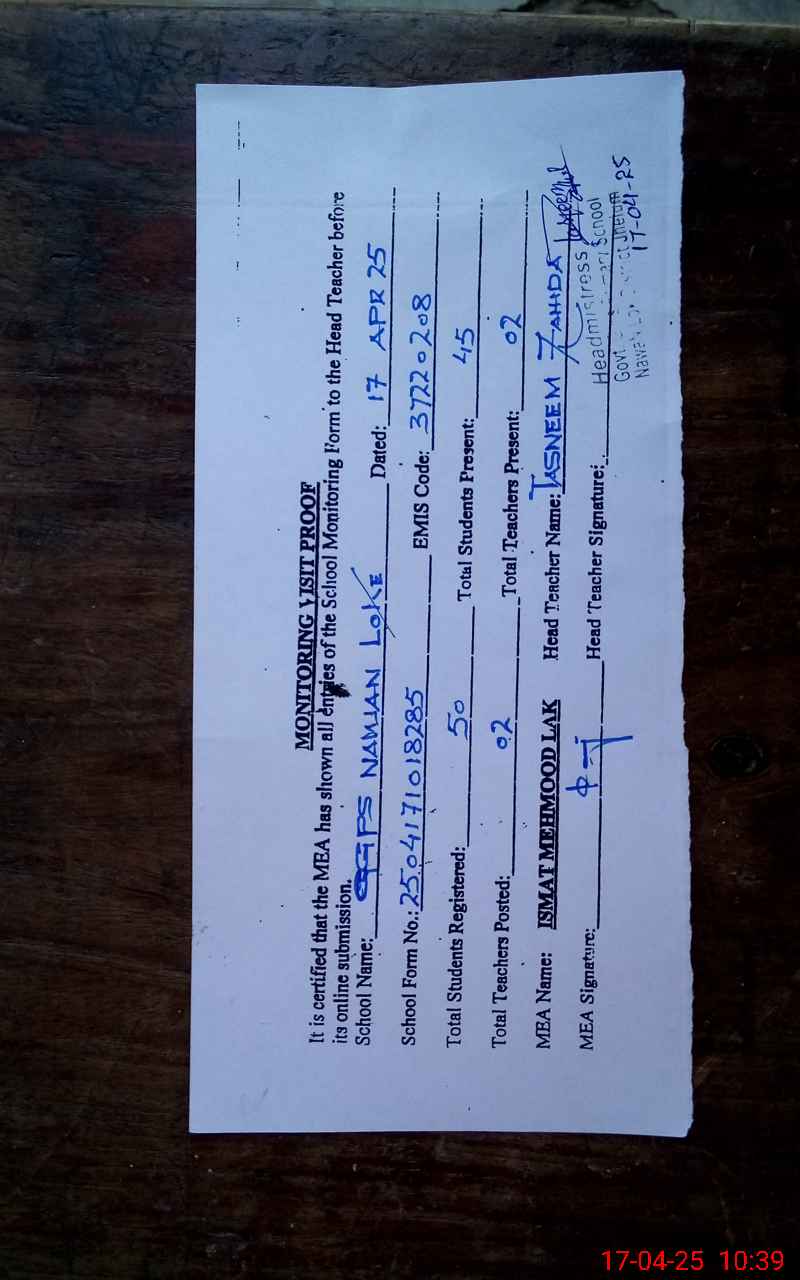 MONITORING VISIT PROOF
It is certified that the MEA has shown all entries of the School Monitoring Form to the Head Teacher before
its online submission.
School Name: GGPS NAMJAN LOKE Dated: 17 APR 25
School Form No.: 250417101 8285 EMIS Code: 37220208
Total Students Registered: 50 Total Students Present: 45
Total Teachers Posted: 02 Total Teachers Present: 02
MEA Name: ISMAT MEHMOOD LAK Head Teacher Name: TASNEEM ZAHIDA
MEA Signature: Head Teacher Signature:
Headmistress
Govt School
Jhelum
17-04-25
17-04-25 10:39